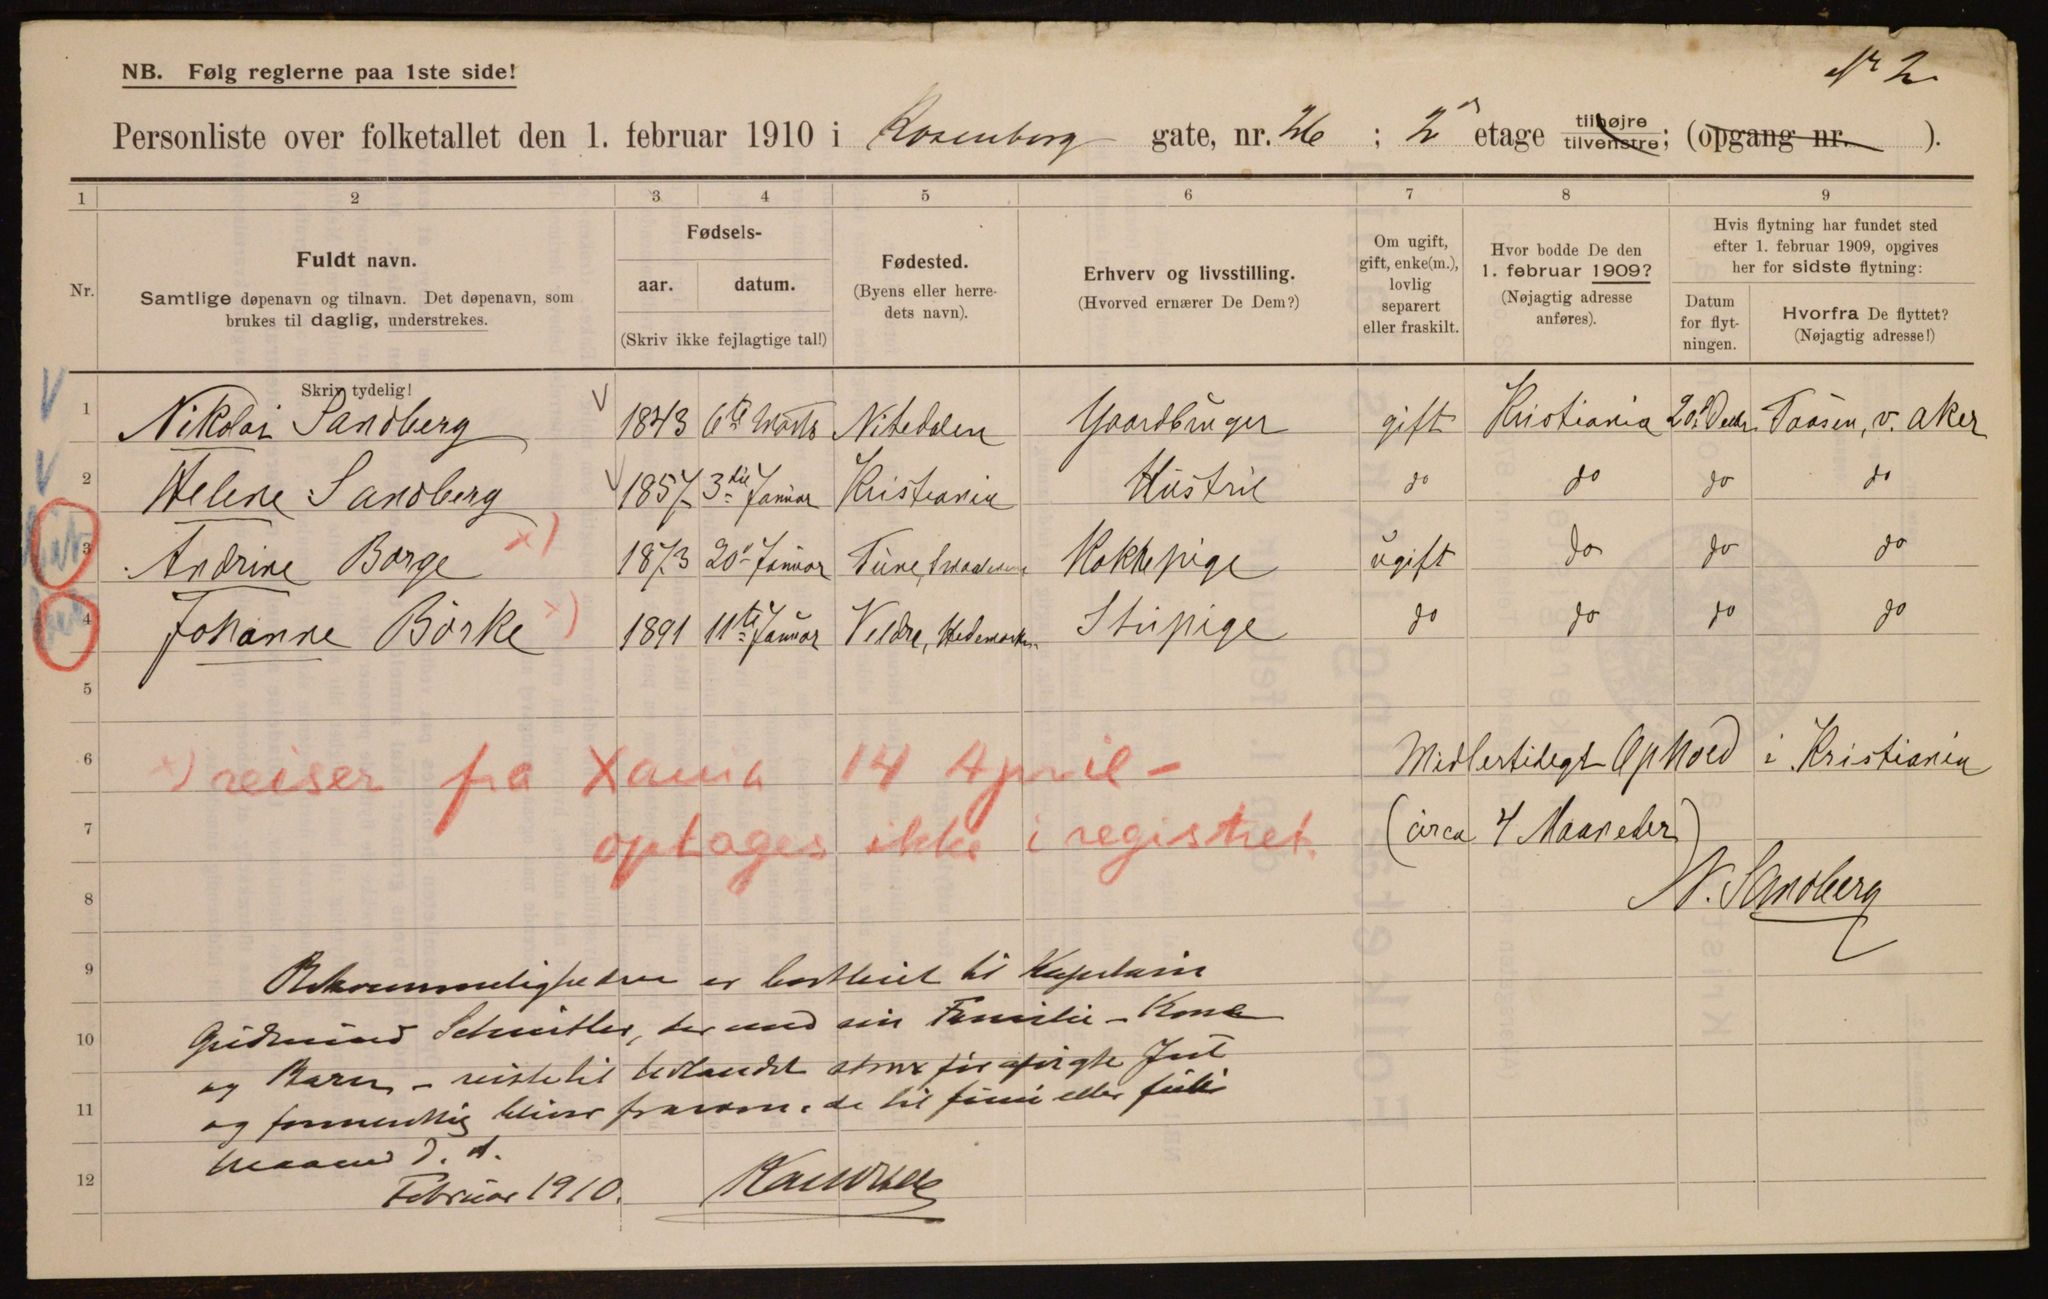 Nr 2.
NB. Følg reglerne paa 1ste side!
Personliste over folketallet den 1. februar 1910 i Rosenborg gate, nr. 26 ; 2 etage tilhøjre tilvenstre; (opgang nr. ).
1 2 3 4 5 6 7 8 9
Nr.
Fuldt navn.
Samtlige døpenavn og tilnavn. Det døpenavn, som
brukes til daglig, understrekes.
Fødsels-
aar. datum.
(Skriv ikke fejlagtige tal!)
Fødested.
(Byens eller herre-
dets navn).
Erhverv og livsstilling.
(Hvorved ernærer De Dem?)
Om ugift,
gift, enke(m.),
lovlig
separert
eller fraskilt.
Hvor bodde De den
1. februar 1909?
(Nøjagtig adresse
anføres).
Hvis flytning har fundet sted
efter 1. februar 1909, opgives
her for sidste flytning:
Datum
for flyt-
ningen.
Hvorfra De flyttet?
(Nøjagtig adresse!)
Skriv tydelig!
1 Nikolai Sandberg 1843 6te Marts Nitedalen Gaardbruger gift Kristiania 20. Decbr. Taasen, v. Aker
2 Helene Sandberg 1857 3die Januar Kristiania Hustru do do do do
3 Andrine Borge x) 1873 20 Januar Tune, Kokkepige ugift do do do
4 Johanne Börke x) 1891 11te Januar Veldre, Hedemarken Stupige do do do do
5
6 x) reiser fra Xania 14 April - Midlertidigt Ophold i Kristiania
7 optages ikke i registret. (circa 4 Maaneder)
8 N. Sandberg
9 Bekvemmeligheden er bortleiet til Kaptain
10 Gudmund Schnitler, der med sin Familie - Kone
og Barn - reiste til Udlandet strax før afvigte Jul
11 og formentlig bliver fraværende til juni eller juli
Maaned d. A.
12 Februar 1910.